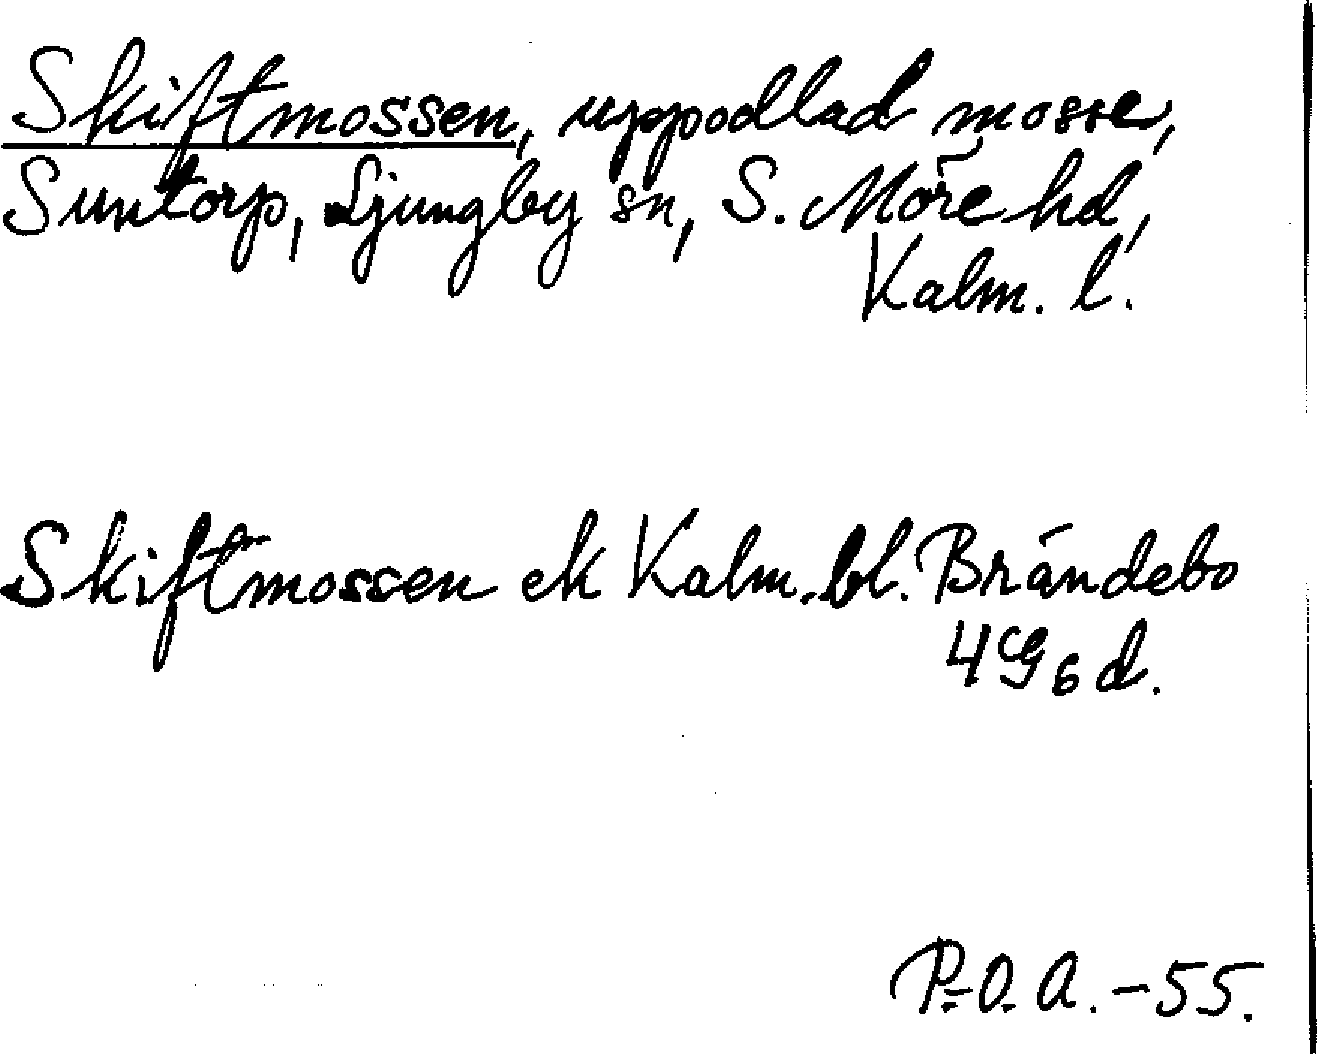 Skiftmossen, uppodlad mosse,
Suntorp, Ljungby sn, S. Möre hd,
Kalm. l.
Skiftmossen ek Kalm. bl. Brändebo
4G6d.
P.-O. A. -55.